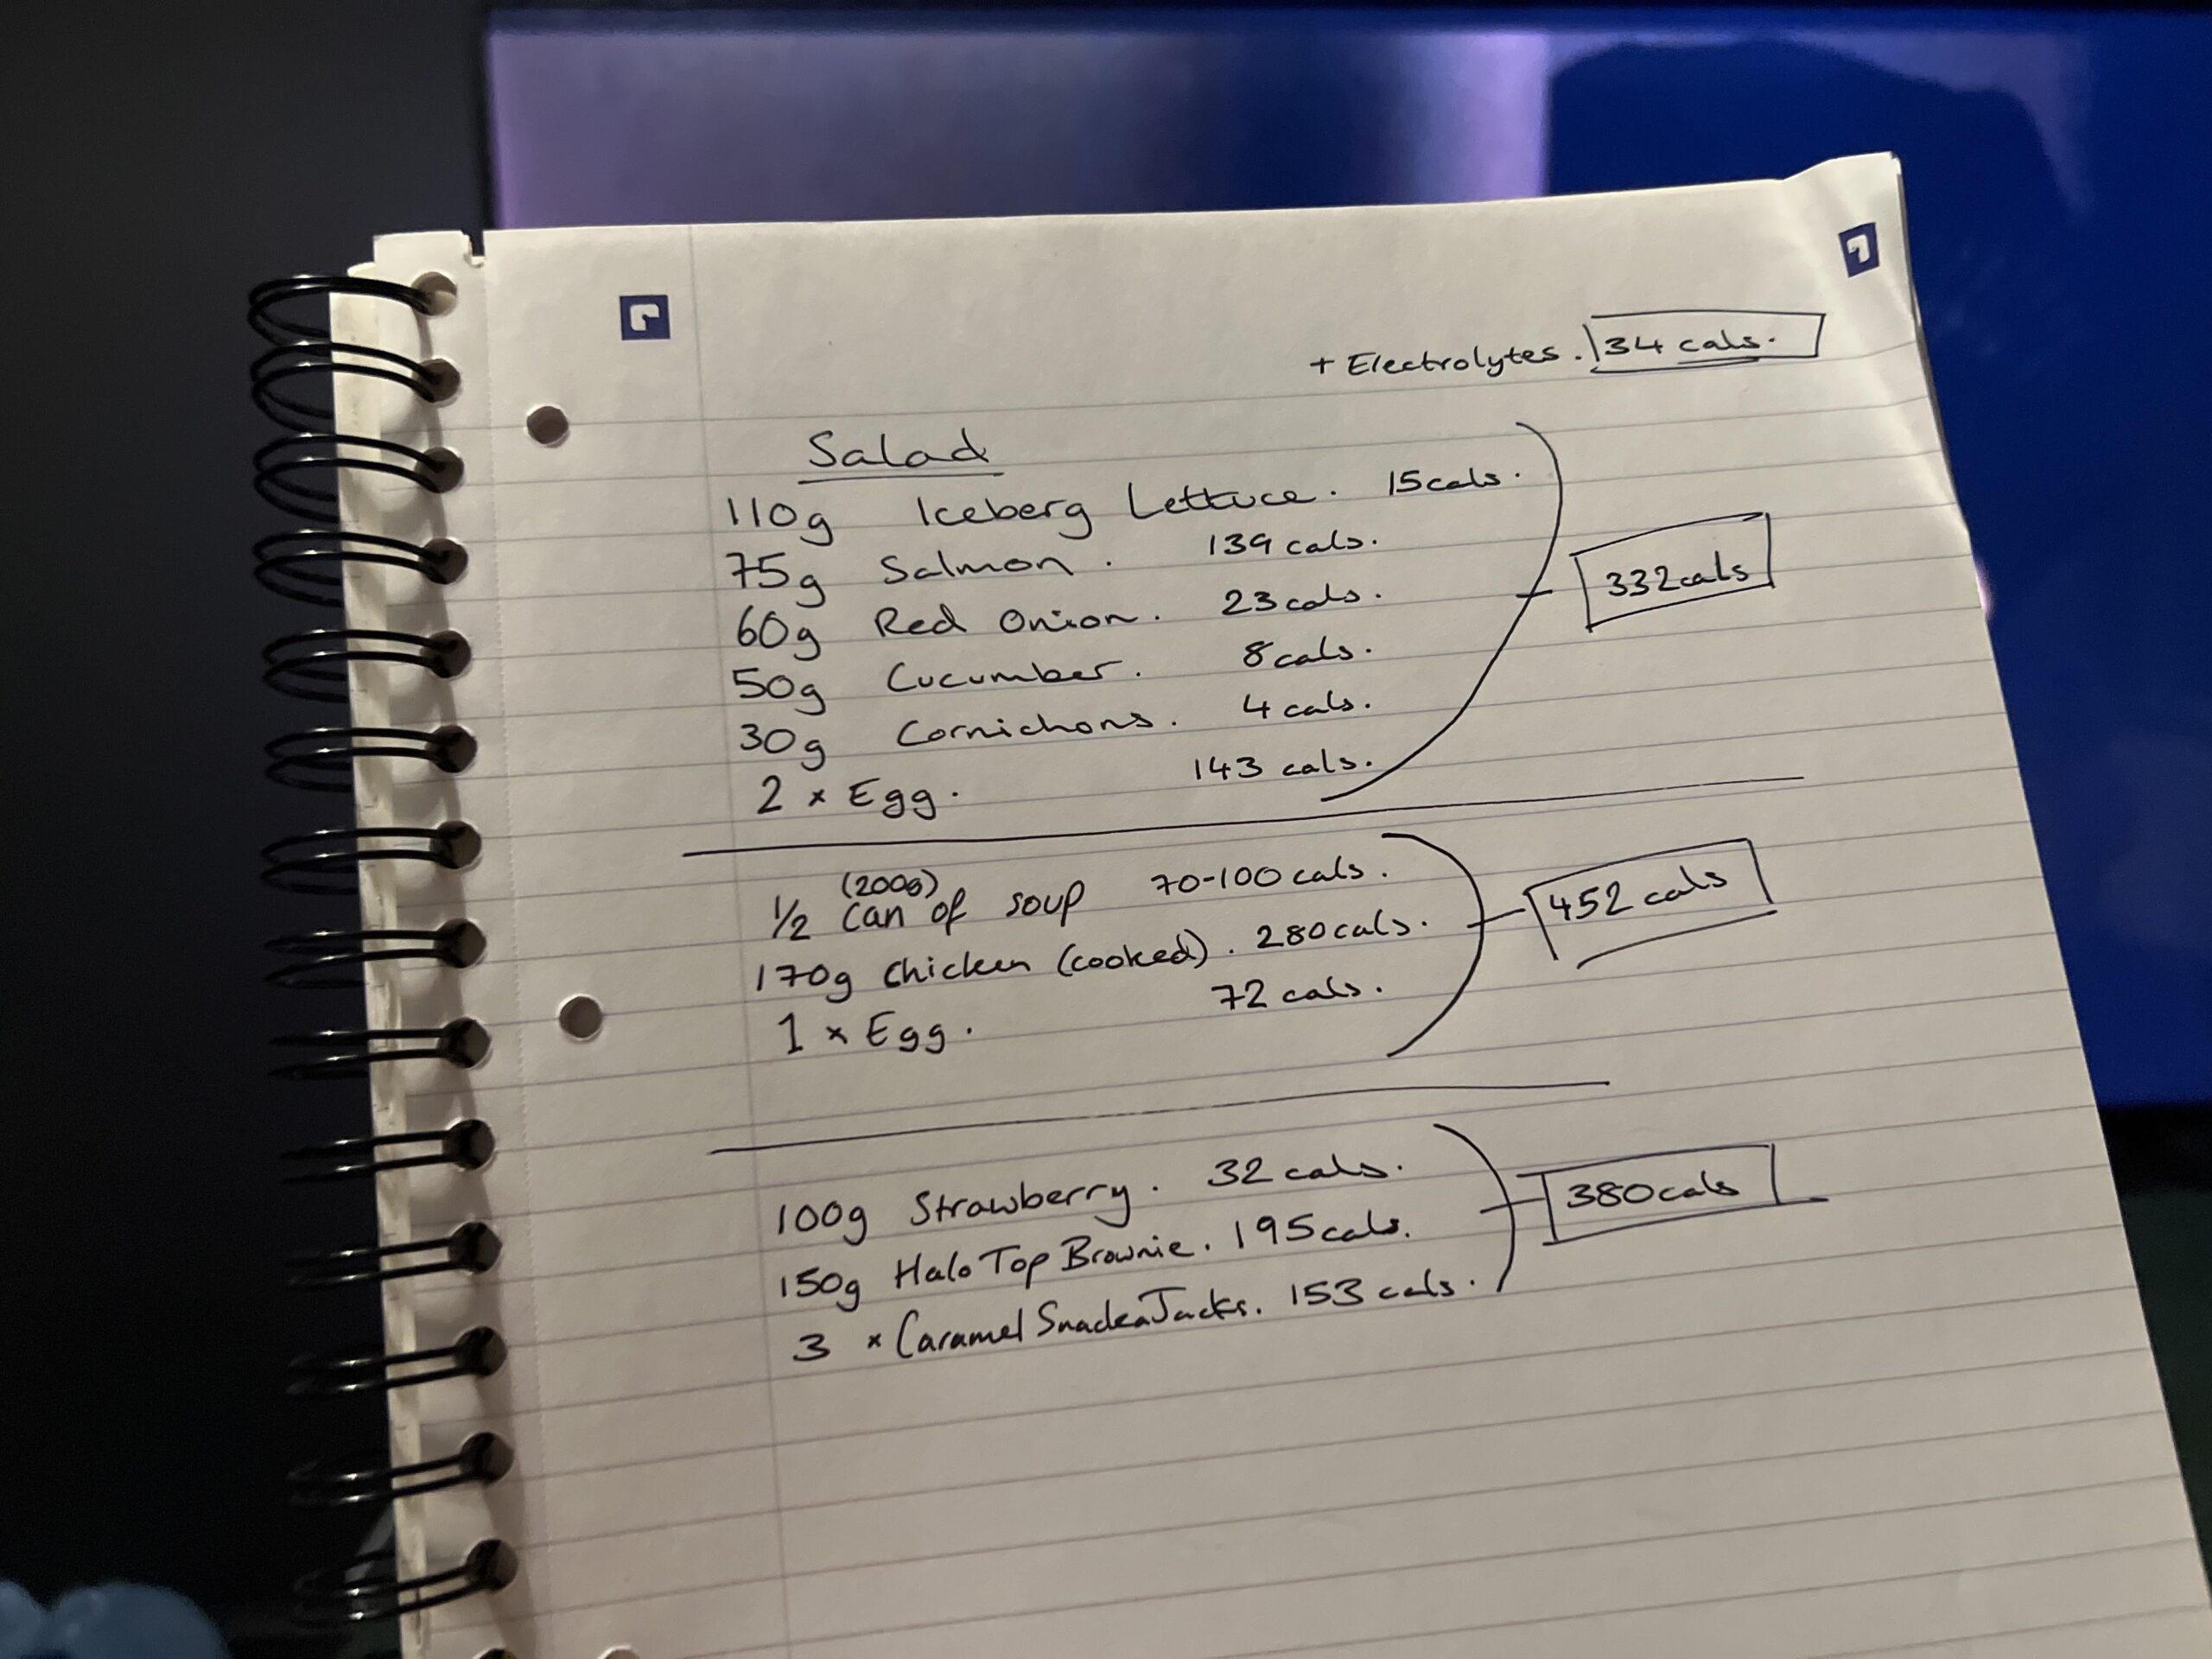 + Electrolytes. 34 cals.
Salad
110g Iceberg Lettuce. 15cals.
75g Salmon. 139 cals.
60g Red Onion. 23cals.
50g Cucumber. 8cals.
30g Cornichons. 4 cals.
2 × Egg. 143 cals.
332cals
(200g)
1/2 can of soup 70-100cals.
170g chicken (cooked). 280cals.
1 × Egg. 72 cals.
452 cals
100g Strawberry. 32 cals.
150g Halo Top Brownie. 195cals.
3 × Caramel SnackaJacks. 153 cals.
380cals